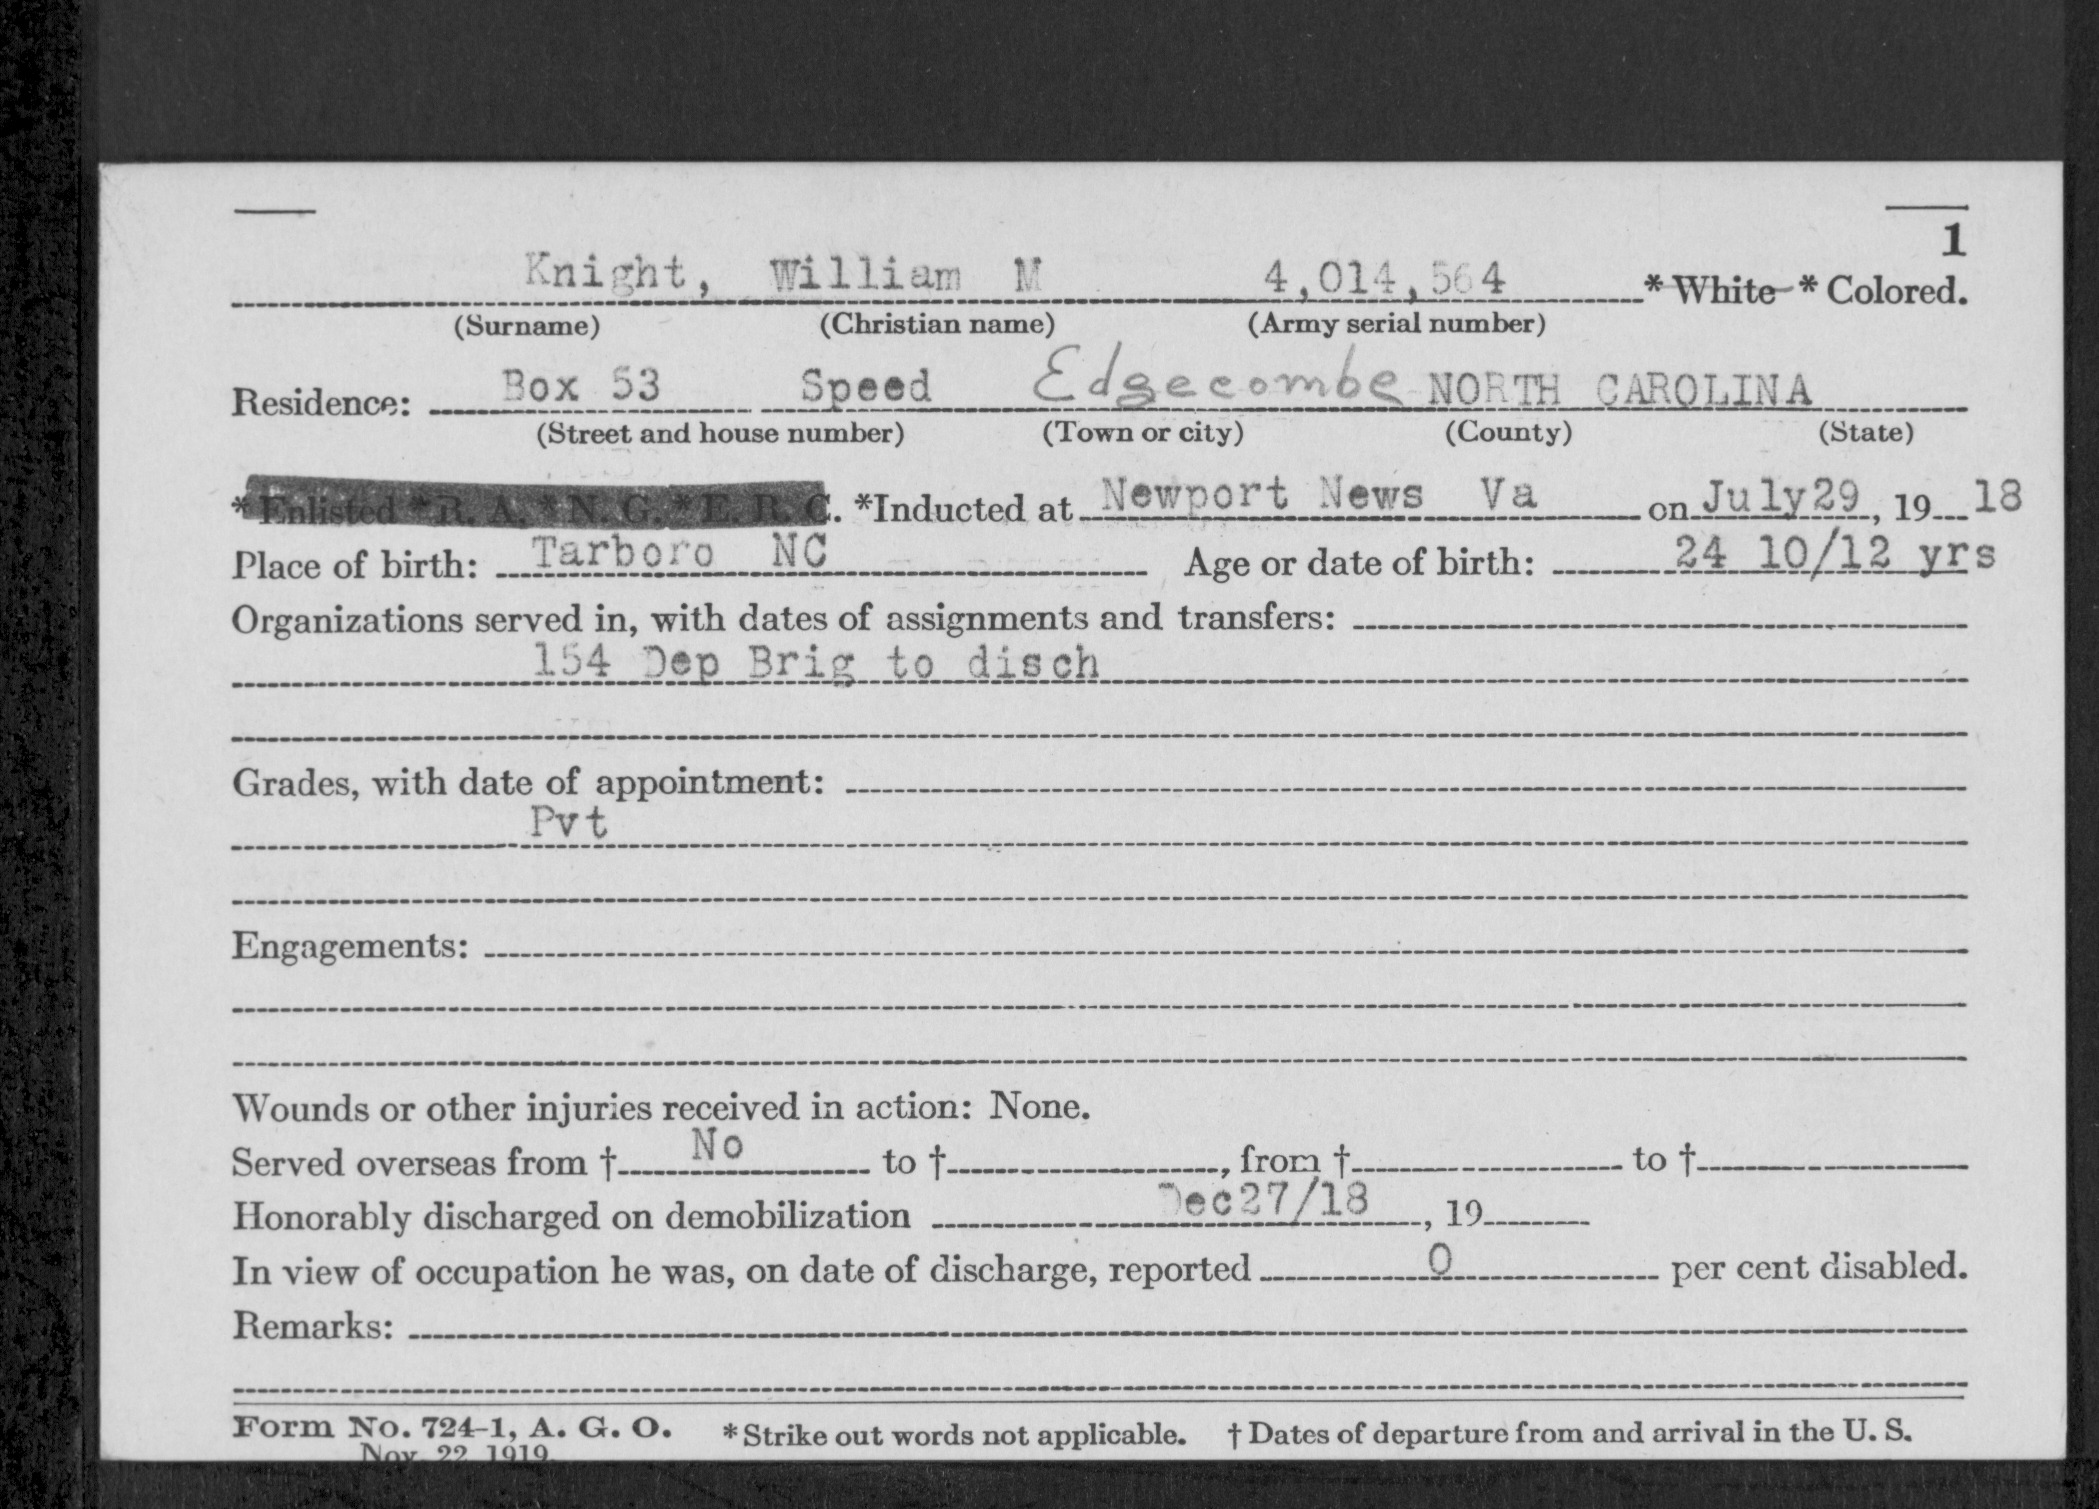 1
Knight, William M 4,014,564 *White *Colored.
(Surname) (Christian name) (Army serial number)
Residence: Box 53 Speed Edgecombe NORTH CAROLINA
(Street and house number) (Town or city) (County) (State)
*Enlisted *R. A. *N. G. *E. R. C. *Inducted at Newport News Va on July 29, 19 18
Place of birth: Tarboro NC Age or date of birth: 24 10/12 yrs
Organizations served in, with dates of assignments and transfers:
154 Dep Brig to disch
Grades, with date of appointment:
Pvt
Engagements:
Wounds or other injuries received in action: None.
Served overseas from † No to †, from † to †
Honorably discharged on demobilization Dec 27/18, 19
In view of occupation he was, on date of discharge, reported 0 per cent disabled.
Remarks:
Form No. 724-1, A. G. O. *Strike out words not applicable. †Dates of departure from and arrival in the U. S.
Nov. 22, 1919.